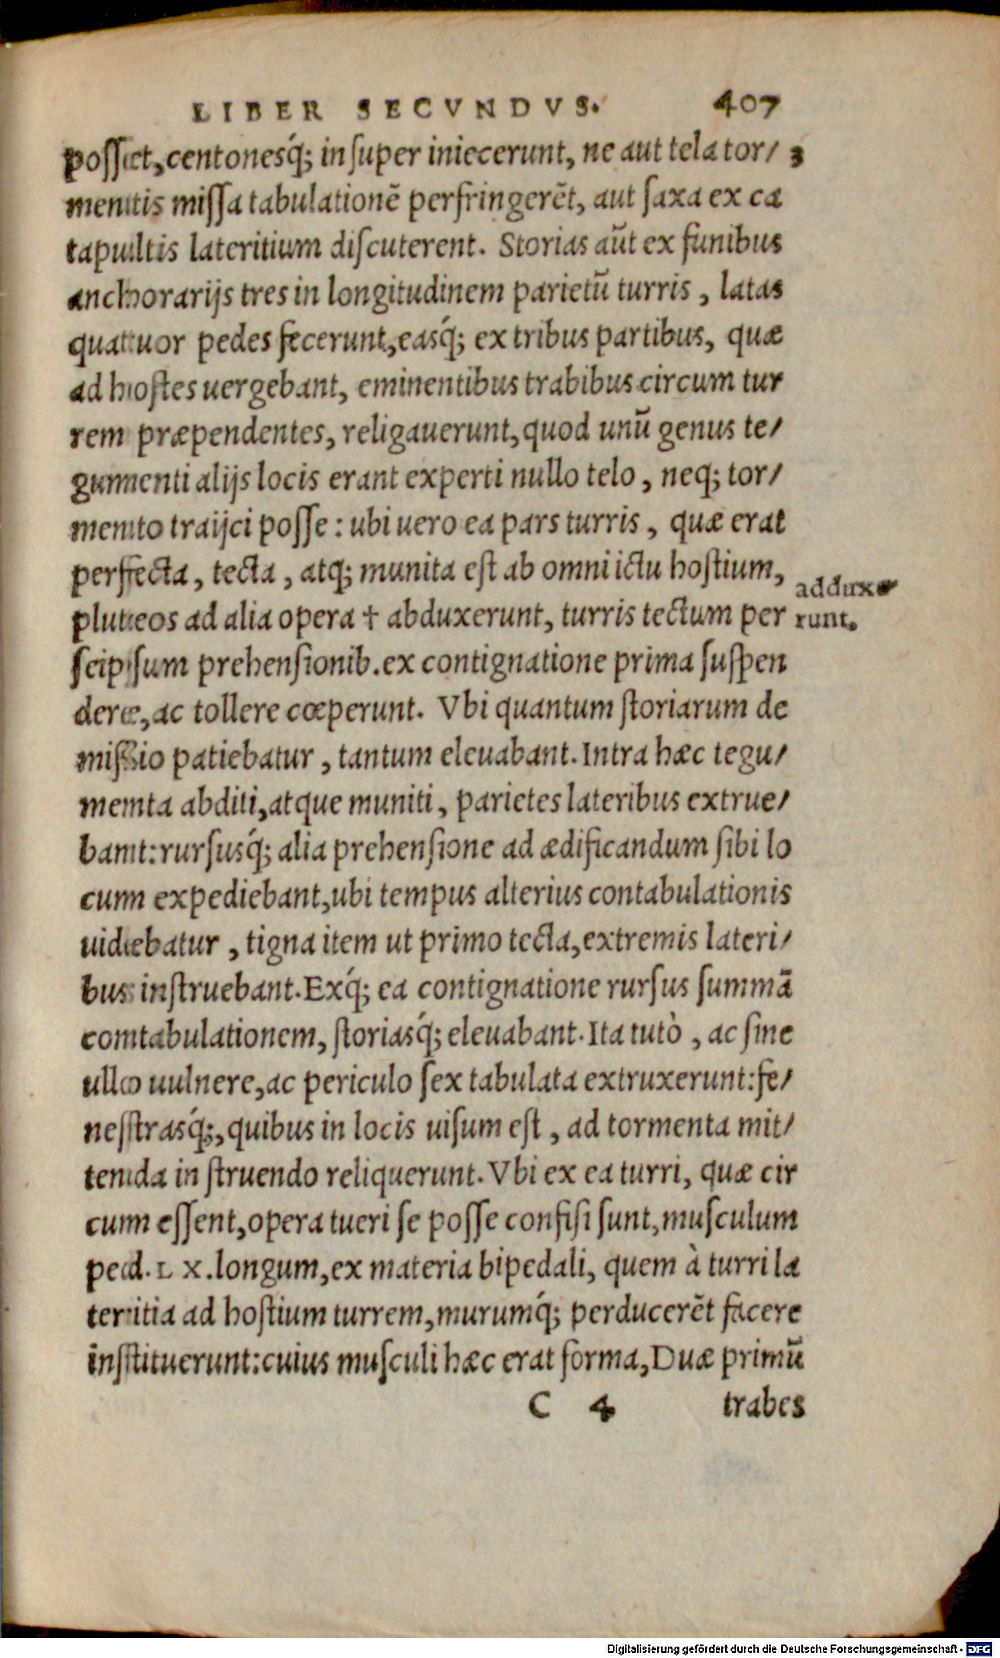 LIBER SECVNDVS. 407
posset, centonesq́; insuper iniecerunt, ne aut tela tor/ 3
mentis missa tabulationẽ perfringerẽt, aut saxa ex ca
tapultis lateritium discuterent. Storias aũt ex funibus
anchorarijs tres in longitudinem parietũ turris, latas
quattuor pedes fecerunt, easq́; ex tribus partibus, quæ
ad hostes uergebant, eminentibus trabibus circum tur
rem præpendentes, religauerunt, quod unũ genus te/
gumenti alijs locis erant experti nullo telo, neq; tor/
mento traijci posse: ubi uero ea pars turris, quæ erat
perfecta, tecta, atq; munita est ab omni ictu hostium,
pluteos ad alia opera † abduxerunt, turris tectum per
adduxe
runt.
seipsum prehensionib. ex contignatione prima suspen
dere, ac tollere cœperunt. Vbi quantum storiarum de
missio patiebatur, tantum eleuabant. Intra hæc tegu/
menta abditi, atque muniti, parietes lateribus extrue/
bant: rursusq́; alia prehensione ad ædificandum sibi lo
cum expediebant, ubi tempus alterius contabulationis
uidebatur, tigna item ut primo tecta, extremis lateri/
bus instruebant. Exq́; ea contignatione rursus summã
contabulationem, storiasq́; eleuabant. Ita tutò, ac sine
ullo uulnere, ac periculo sex tabulata extruxerunt: fe/
nestrasq́;, quibus in locis uisum est, ad tormenta mit/
tenda in struendo reliquerunt. Vbi ex ea turri, quæ cir
cum essent, opera tueri se posse confisi sunt, musculum
ped. L X. longum, ex materia bipedali, quem à turri la
teritia ad hostium turrem, murumq́; perducerẽt facere
instituerunt: cuius musculi hæc erat forma, Duæ primũ
C 4 trabes
Digitalisierung gefördert durch die Deutsche Forschungsgemeinschaft - DFG